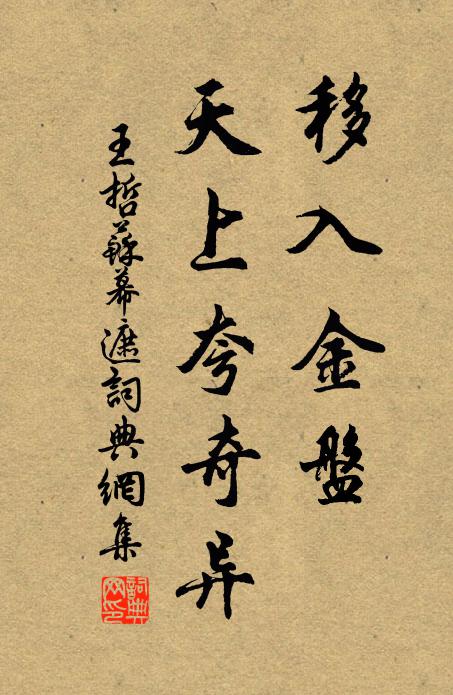 移入金盤
天上夸奇异
王哲蘇幕遮詞典網集
詞典
网印